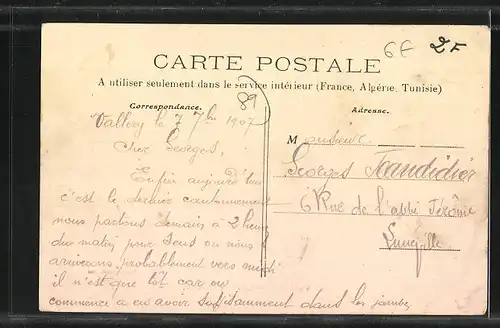 6F 2F
CARTE POSTALE
A utiliser seulement dans le service intérieur (France, Algérie, Tunisie)
89
Correspondance.
Adresse.
Vallery le 7 7bre 1907
Cher Georges,
Enfin aujourd'hui
c'est le dernier cantonnement
nous partons demain à 2 heures
du matin pour Sens ou nous
arriverons probablement vers midi
il n'est que tôt car on
commence a en avoir suffisamment dans les jambes
Monsieur
Georges Jeandidier
6 Rue de l'abbé Jérôme
Lunéville